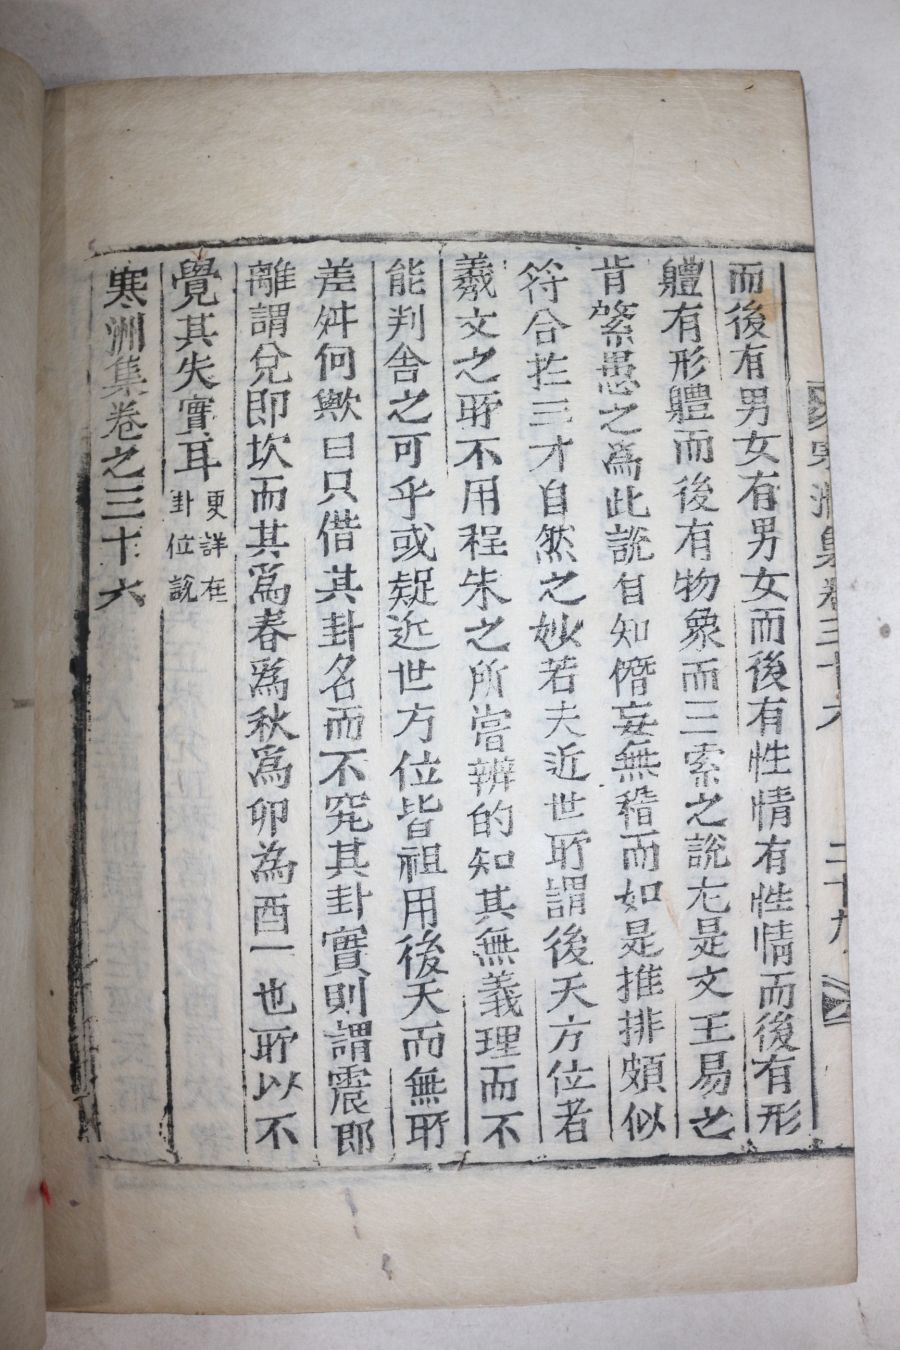 寒洲集卷三十六 二十九
而後有男女有男女而後有性情有性情而後有形
軆有形軆而後有物象而三索之說尢是文王易之
肯綮愚之爲此說自知僭妄無稽而如是推排頗似
符合扵三才自然之妙若夫近世所謂後天方位者
羲文之所不用程朱之所當辨的知其無義理而不
能判舎之可乎或疑近世方位皆祖用後天而無所
差舛何歟曰只借其卦名而不究其卦實則謂震郎
離謂兌即坎而其爲春爲秋爲卯為酉一也所以不
覺其失實耳
更詳在
卦位說
寒洲集卷之三十六